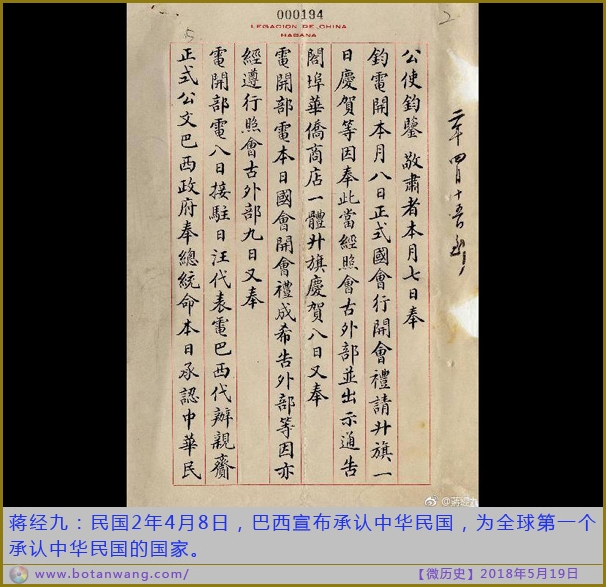 000194
LEGACION DE CHINA
HABANA
公使鈞鑒敬肅者本月七日奉
鈞電開本月八日正式國會行開會禮請升旗一
日慶賀等因奉此當經照會古外部並出示通告
閤埠華僑商店一體升旗慶賀八日又奉
電開部電本日國會開會禮成希告外部等因亦
經遵行照會古外部九日又奉
電開部電八日接駐日汪代表電巴西代辦親齎
正式公文巴西政府奉總統命本日承認中華民
@蒋经九
蒋经九：民国2年4月8日，巴西宣布承认中华民国，为全球第一个
承认中华民国的国家。
www.botanwang.com/
【微历史】2018年5月19日